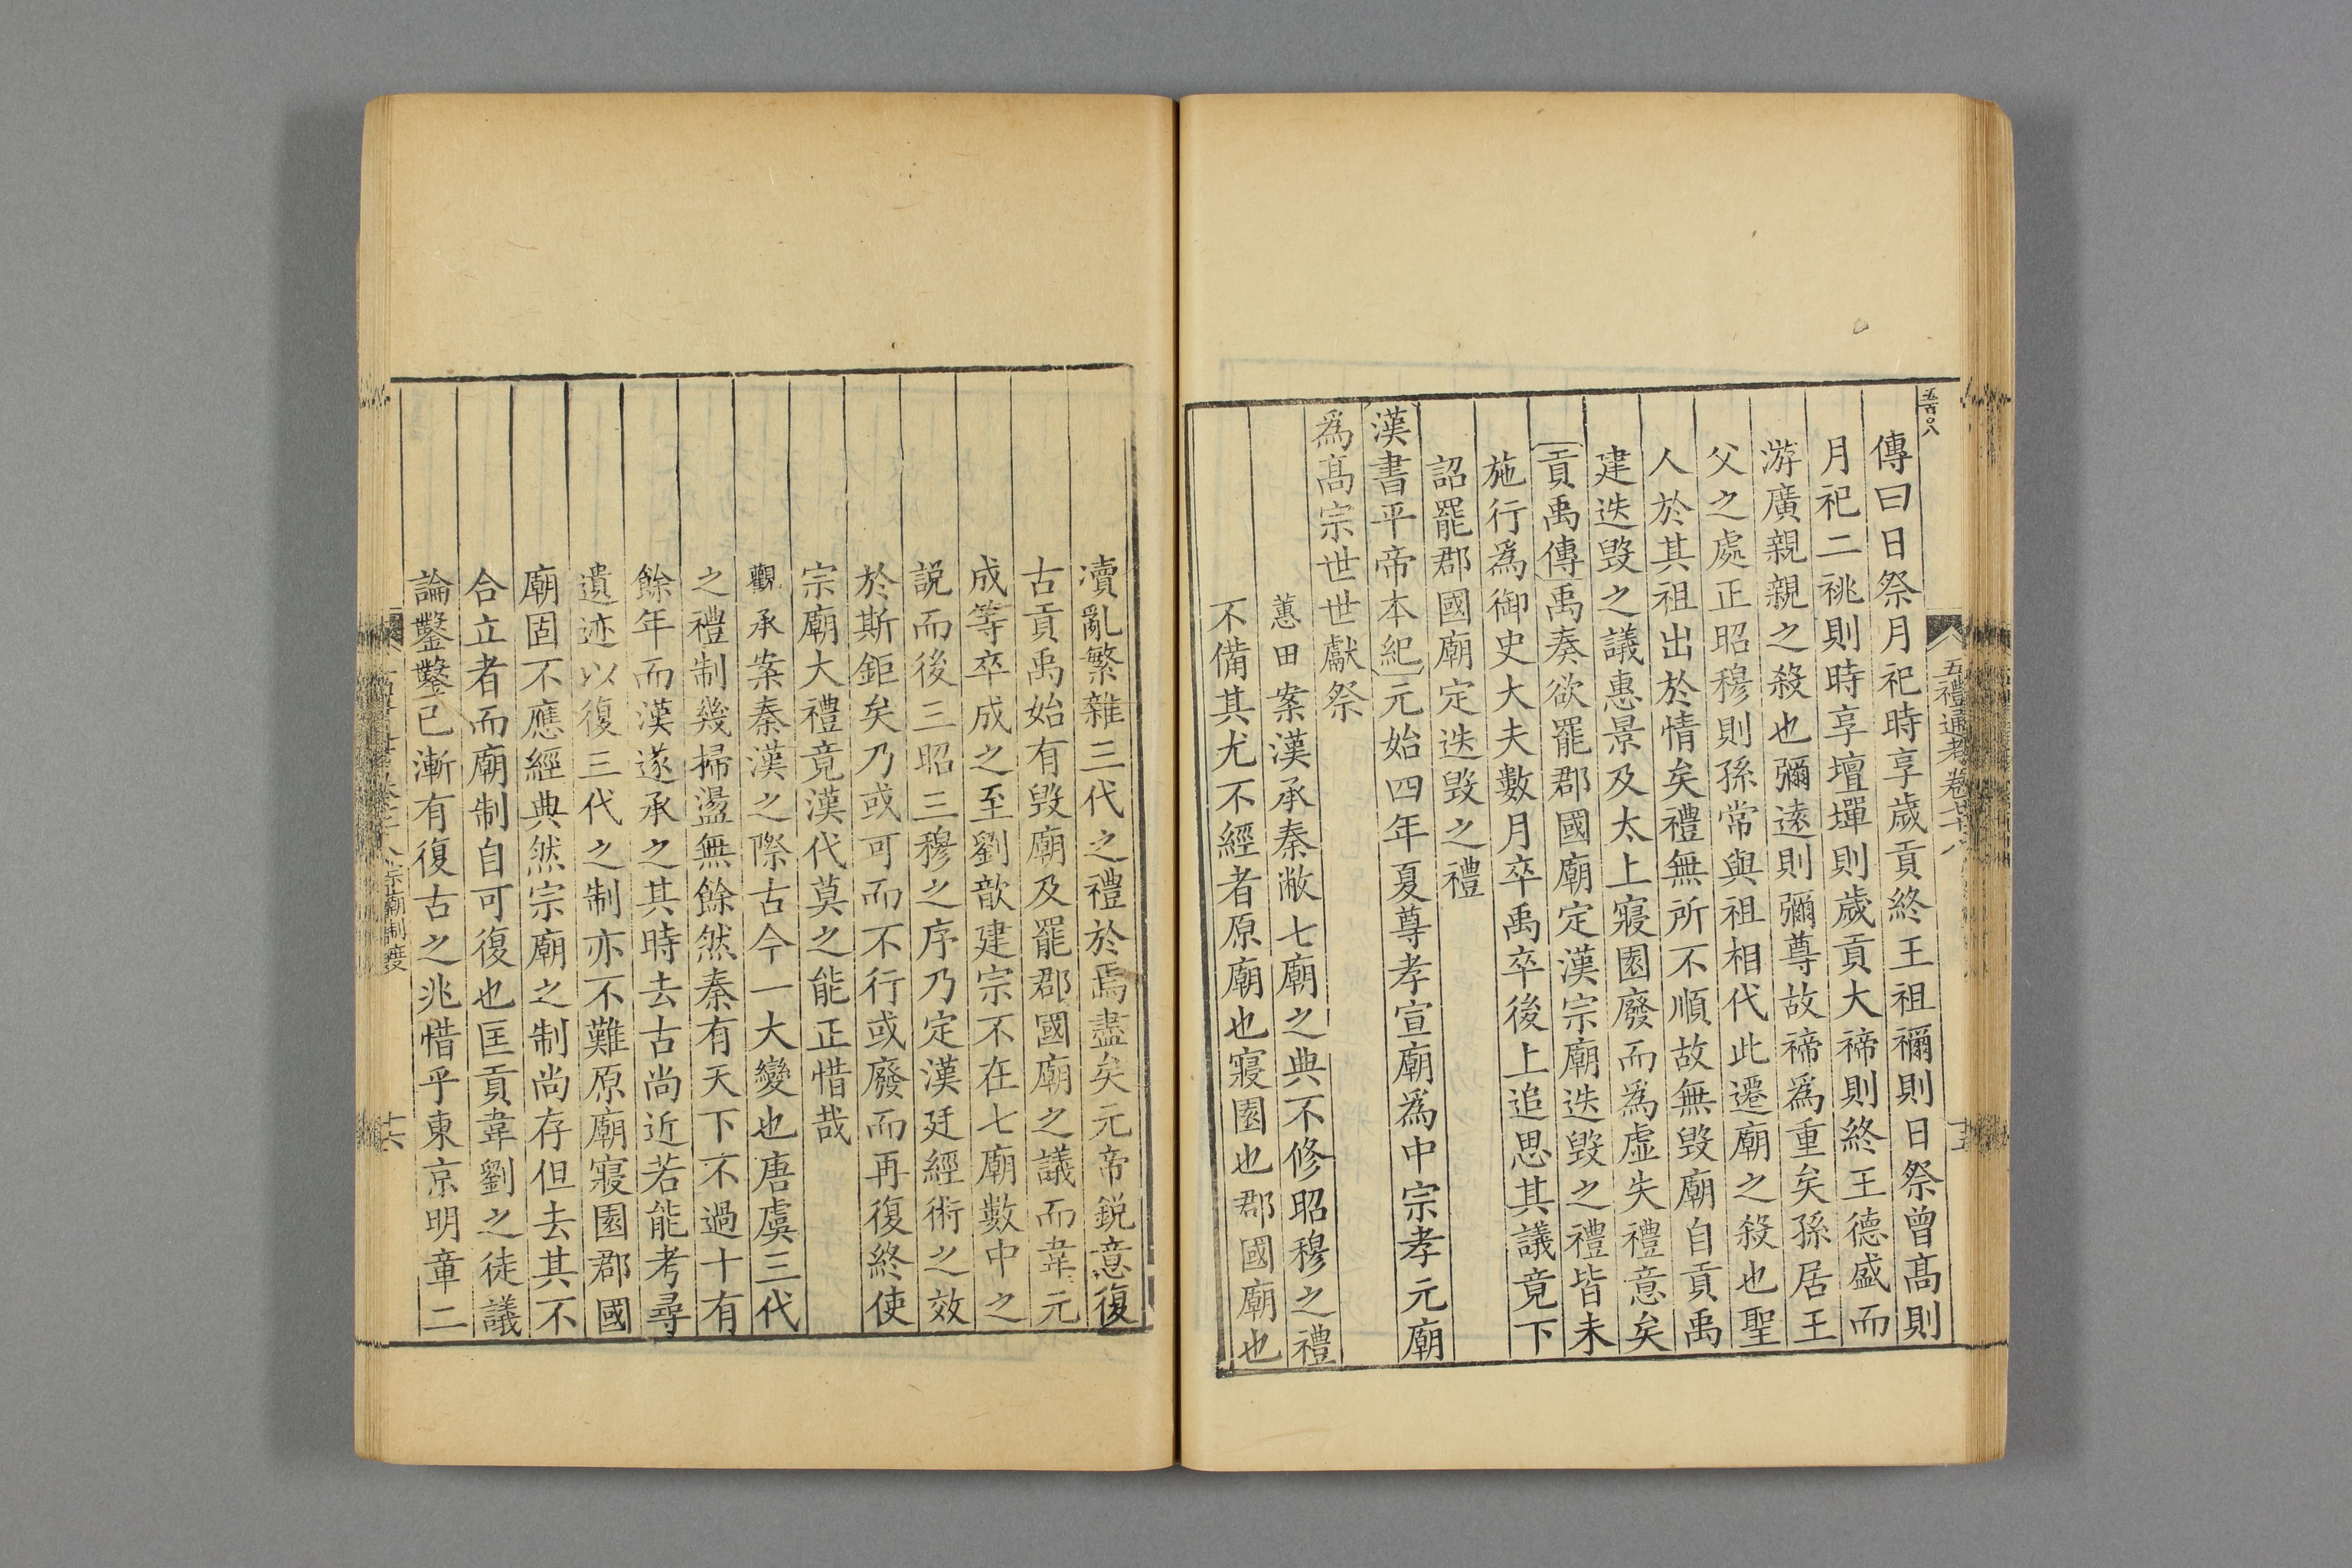 五百〇八
五禮通考卷七十八
十五
傳曰日祭月祀時享歲貢終王祖禰則日祭曾高則
月祀二祧則時享壇墠則歲貢大禘則終王德盛而
游廣親親之殺也彌遠則彌尊故禘爲重矣孫居王
父之處正昭穆則孫常與祖相代此遷廟之殺也聖
人於其祖出於情矣禮無所不順故無毀廟自貢禹
建迭毀之議惠景及太上寢園廢而爲虛失禮意矣
貢禹傳禹奏欲罷郡國廟定漢宗廟迭毀之禮皆未
施行爲御史大夫數月卒禹卒後上追思其議竟下
詔罷郡國廟定迭毀之禮
漢書平帝本紀元始四年夏尊孝宣廟爲中宗孝元廟
爲高宗世世獻祭
蕙田案漢承秦敝七廟之典不修昭穆之禮
不備其尤不經者原廟也寢園也郡國廟也
瀆亂繁雜三代之禮於焉盡矣元帝銳意復
古貢禹始有毀廟及罷郡國廟之議而韋元
成等卒成之至劉歆建宗不在七廟數中之
說而後三昭三穆之序乃定漢廷經術之效
於斯鉅矣乃或可而不行或廢而再復終使
宗廟大禮竟漢代莫之能正惜哉
觀承案秦漢之際古今一大變也唐虞三代
之禮制幾掃盪無餘然秦有天下不過十有
餘年而漢遂承之其時去古尚近若能考尋
遺迹以復三代之制亦不難原廟寢園郡國
廟固不應經典然宗廟之制尚存但去其不
合立者而廟制自可復也匡貢韋劉之徒議
論鑿鑿已漸有復古之兆惜乎東京明章二
宗廟制度
十六